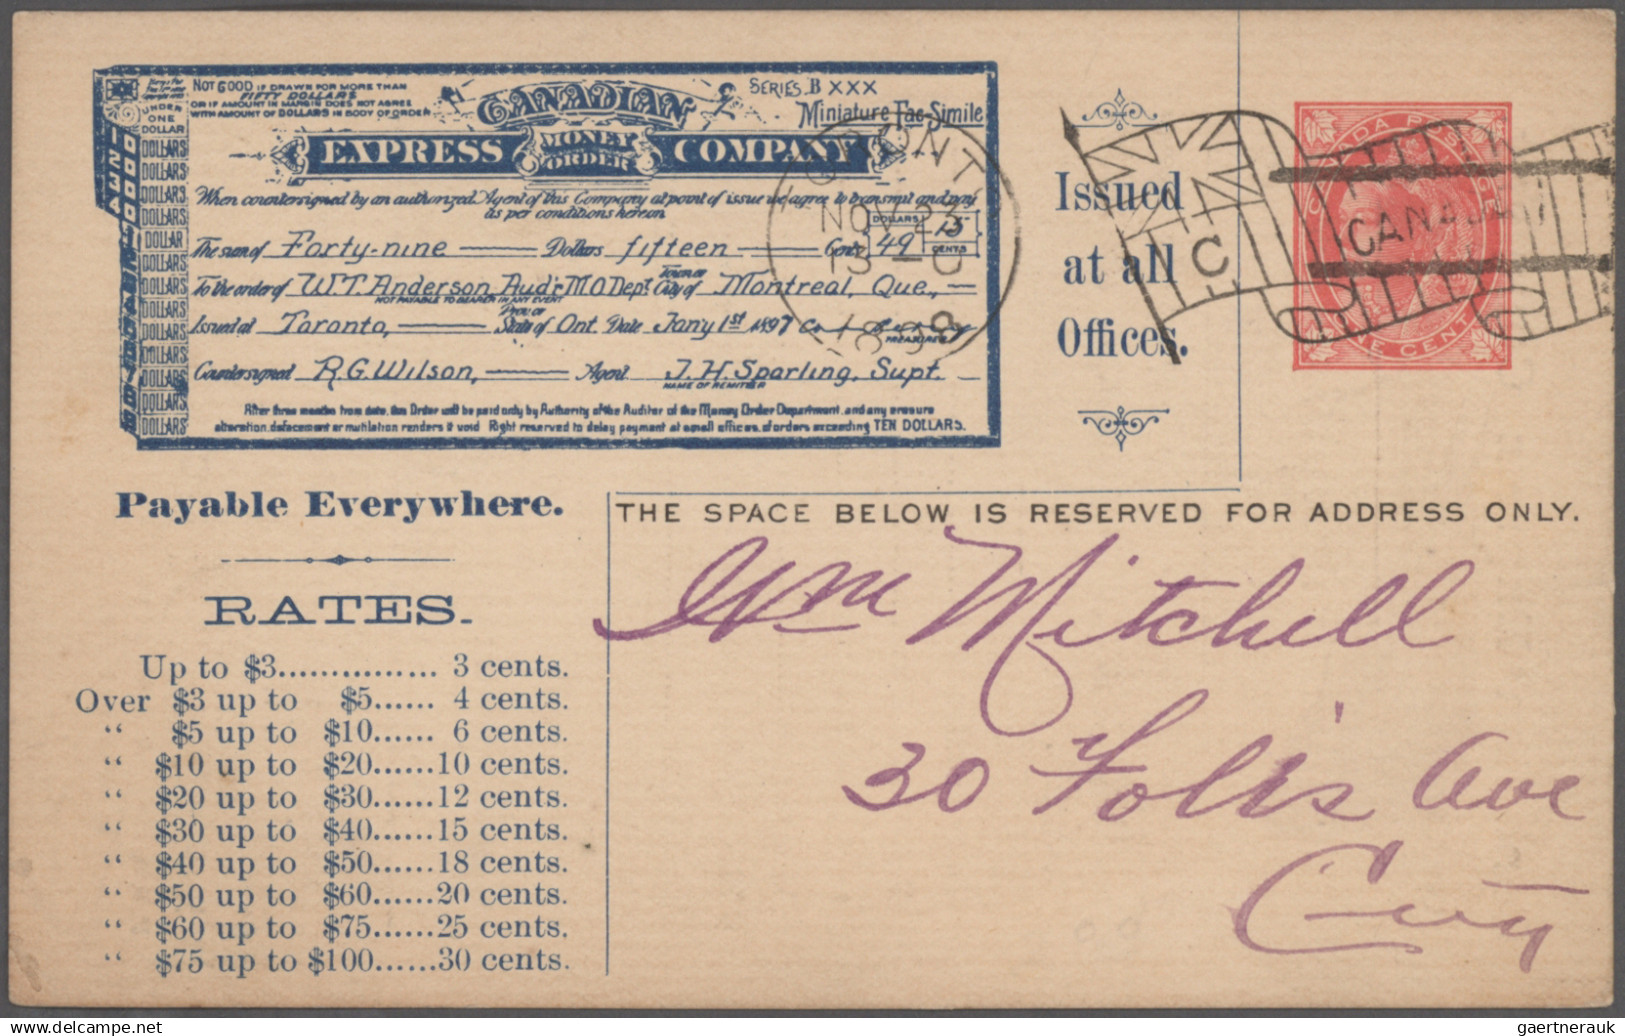 NOT GOOD IF DRAWN FOR MORE THAN
FIFTY DOLLARS
OR IF AMOUNT IN MARGIN DOES NOT AGREE
WITH AMOUNT OF DOLLARS IN BODY OF ORDER
SERIES B XXX
Miniature Fac-Simile
CANADIAN
EXPRESS MONEY ORDER COMPANY
UNDER
ONE
DOLLAR
DOLLARS
DOLLARS
DOLLARS
DOLLARS
DOLLAR
DOLLARS
DOLLARS
DOLLARS
DOLLARS
DOLLARS
DOLLARS
DOLLARS
DOLLARS
When countersigned by an authorized Agent of this Company at point of issue we agree to transmit and pay
as per conditions hereon
The sum of Forty-nine Dollars fifteen Cents
DOLLARS 49 15 CENTS
To the order of W.T. Anderson, Aud'r M.O Dept. Town or City of Montreal, Que.,
NOT PAYABLE TO BEARER IN ANY EVENT
Issued at Toronto, Prov. or State of Ont. Date Jan'y 1st 1897
TREASURER
Countersigned R.G. Wilson, Agent J.H. Sparling, Supt.
NAME OF REMITTER
After three months from date, this Order will be paid only by Authority of the Auditor of the Money Order Department, and any erasure
alteration, defacement or mutilation renders it void Right reserved to delay payment at small offices, of orders exceeding TEN DOLLARS.
TORONTO
NOV 23
1898
Issued
at all
Offices.
C
CANADA POSTAGE
CANADA
ONE CENT
Payable Everywhere.
THE SPACE BELOW IS RESERVED FOR ADDRESS ONLY.
RATES.
Up to $3............... 3 cents.
Over $3 up to $5...... 4 cents.
“ $5 up to $10...... 6 cents.
“ $10 up to $20......10 cents.
“ $20 up to $30......12 cents.
“ $30 up to $40......15 cents.
“ $40 up to $50......18 cents.
“ $50 up to $60......20 cents.
“ $60 up to $75......25 cents.
“ $75 up to $100......30 cents.
Wm Mitchell
30 Follis Ave
City
gaertnerauk